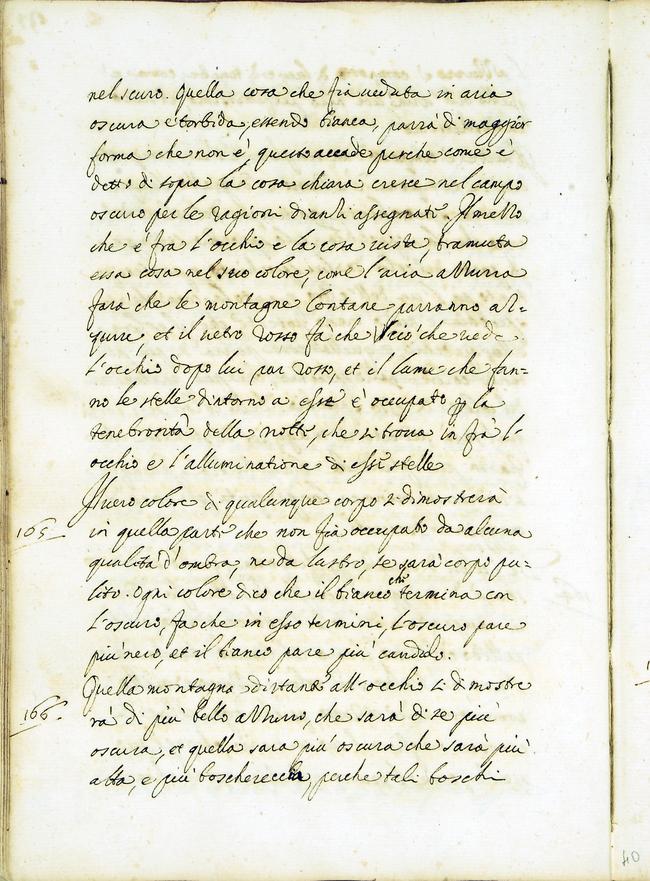 nel scuro. Quella cosa che fia veduta in aria
oscura e torbida, essendo bianca, parrà di maggior
forma che non è, questo accade perche come è
detto di sopra la cosa chiara cresce nel campo
oscuro per le ragioni dianzi assegnate. Il mezzo
che è fra l'occhio e la cosa vista, tramuta
essa cosa nel suo colore, come l'aria azzurra
farà che le montagne lontane parranno az=
zurre, et il vetro rosso fà che ciò che vede
l'occhio dopo lui par rosso, et il lume che fan=
no le stelle dintorno a esse è occupato p la
tenebrosità della notte, che si trova in frà l'
occhio e l'alluminatione di esse stelle
Il vero colore di qualunque corpo si dimostrerà
165 in quella parte che non fia occupato da alcuna
qualità d'ombra, ne da lustro, se sarà corpo pu=
lito. Ogni colore dico che il bianco che termina con
l'oscuro, fa che in esso termini, l'oscuro pare
più nero, et il bianco pare più candido.
Quella montagna distante all'occhio si dimostre
166. rà di più bello azzurro, che sarà di se più
oscura, et quella sara più oscura che sarà più
alta, e più boschereccia, perche tali boschi
40